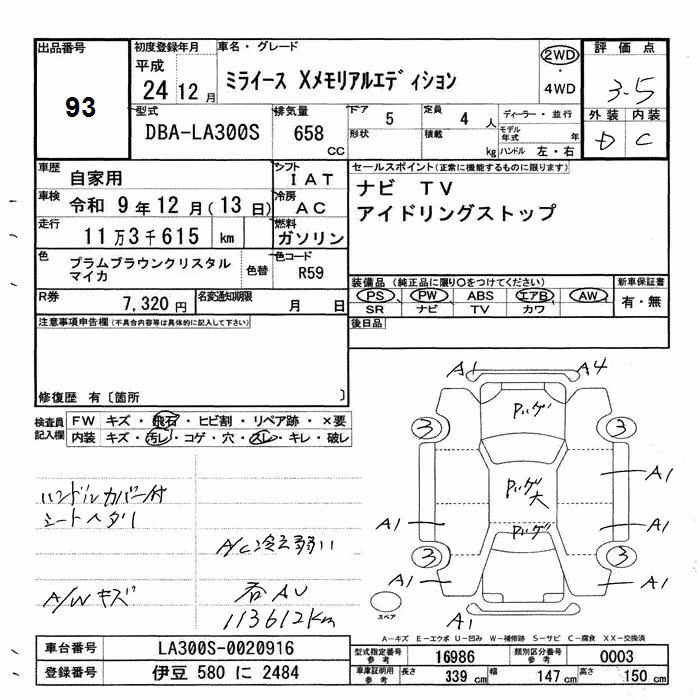 出品番号 初度登録年月 車名・グレード 2WD 評価点
93 平成 24 12月 ミライース Xメモリアルエディション ・ 4WD 3.5
外装 内装
D C
型式 排気量 ドア 5 定員 4人 ディーラー・並行
DBA-LA300S 658 cc 形状 積載 kg モデル年式 年
ハンドル 左・右
車歴 自家用 シフト IAT セールスポイント(正常に機能するものに限ります)
車検 令和 9年 12月 (13日) 冷房 AC ナビ TV
走行 11万3千615 km 燃料 ガソリン アイドリングストップ
色 プラムブラウンクリスタルマイカ 色替 色コード R59
装備品(純正品に限り○をつけてください) 新車保証書
PS PW ABS エアB AW 有・無
SR ナビ TV カワ
R券 7,320円 名変通知期限 月 日
後日品
注意事項申告欄(不具合内容等は具体的に記入して下さい)
修復歴 有〔箇所 〕
検査員記入欄 FW キズ・飛石・ヒビ割・リペア跡・×要
内装 キズ・汚レ・コゲ・穴・スレ・キレ・破レ
ハンドルカバー付
シートヘタリ
A/C冷え弱い
A/Wキズ
113612km
A1 A4
Pルーゲ
3 3
Pルーゲ大
A1
A1 A1
Pルーゲ
3 3
A1 A1
スペア
A1
A-キズ E-エクボ U-凹み W-補修跡 S-サビ C-腐食 XX-交換済
車台番号 LA300S-0020916 型式指定番号参考 16986 類別区分番号参考 0003
登録番号 伊豆 580 に 2484 車庫証明用参考 長さ 339 cm 幅 147 cm 高さ 150 cm